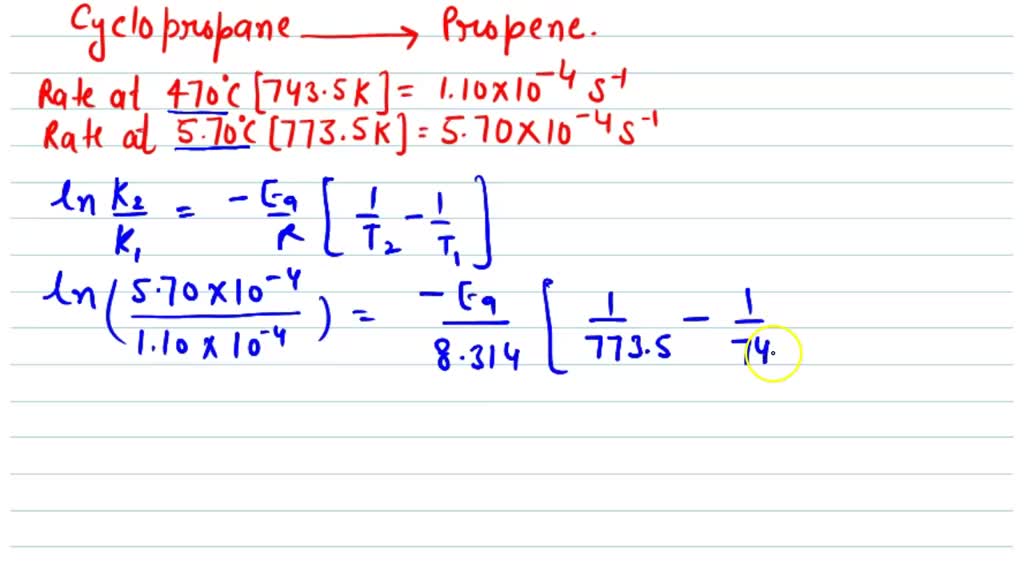 Cyclopropane ⟶ Propene.
Rate at 470°C [743.5K] = 1.10×10⁻⁴ s⁻¹
Rate at 5.70°C [773.5K] = 5.70×10⁻⁴ s⁻¹
ln K₂/K₁ = -Ea/R [1/T₂ - 1/T₁]
ln(5.70×10⁻⁴/1.10×10⁻⁴) = -Ea/8.314 [1/773.5 - 1/74.